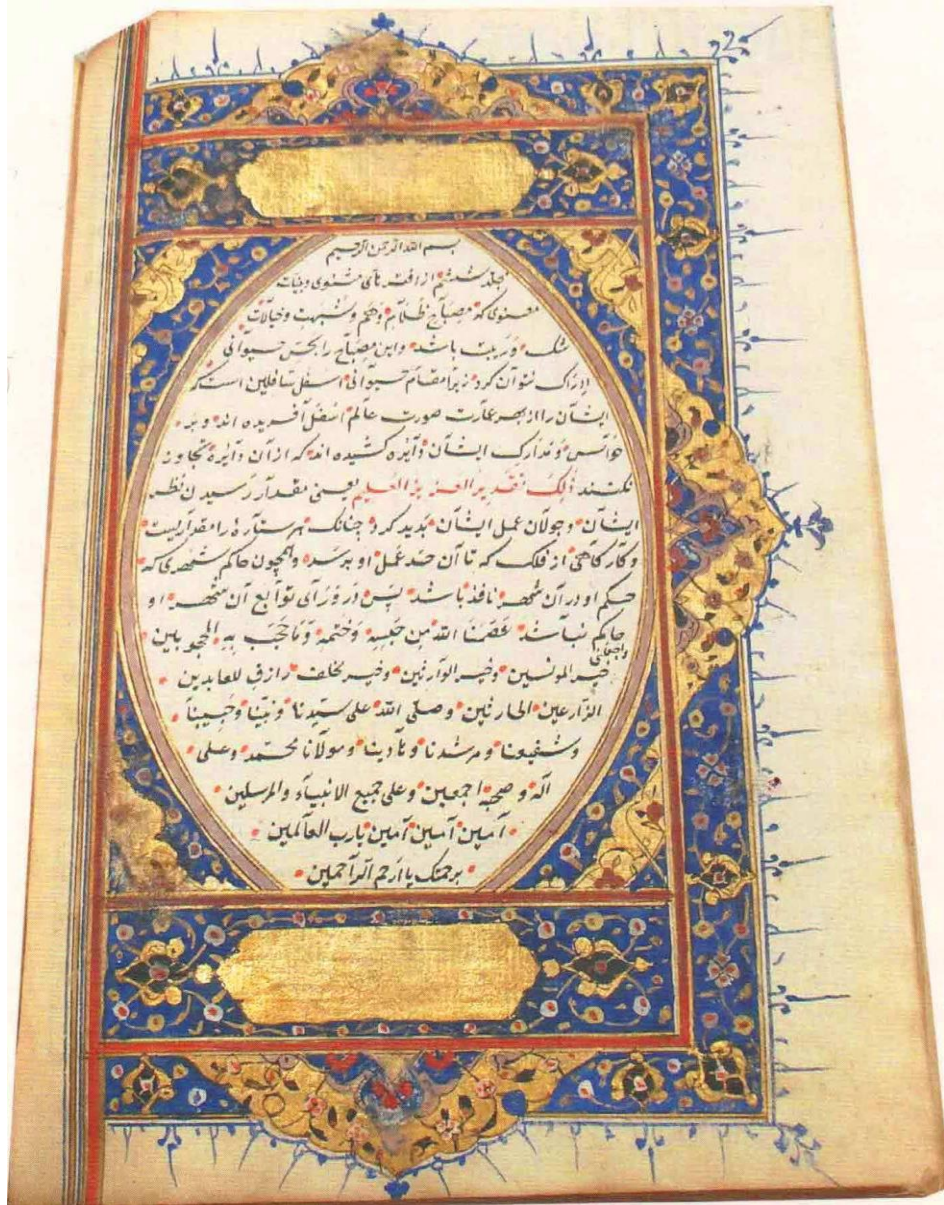 بسم الله الرحمن الرحيم
مجلد ششم از دفترهای مثنوی و بینات
معنوی که مصباح ظلام وهم و شبهت و خیالات
شک و ریبت باشد و این مصباح را بحس حیوانی
ادراک نتوان کرد زیرا مقام حیوانی اسفل سافلین است که
ایشان را از بهر عمارت صورت عالم اسفل آفریده اند و بر
حواس و مدارک ایشان دآیره کشیده اند که از آن دآیره تجاوز
نکنند ذلک تقدیر العزیز العلیم یعنی مقدار رسیدن نظر
ایشان و جولان عمل ایشان بدید کرد چنانک هر ستاره را مقداریست
و کارگاهی از فلک که تا آن حد عمل او برسد و همچون حاکم شهری که
حکم او در آن شهر نافذ باشد پس در ورآی توابع آن شهر او
حاکم نباشد عصمنا الله من حبسه وختمه وما حجب به المحجوبین
واجعلنی
خیر المونسین وخیر الوارثین وخیر مخلف رازق للعابدین
الزارعین الحارثین وصلی الله علی سیدنا ونبینا وحبیبنا
وشفیعنا ومرشدنا وهادینا ومولانا محمد وعلی
آله وصحبه اجمعین وعلی جمیع الانبیآء والمرسلین
آمین آمین آمین یا رب العآلمین
برحمتک یا ارحم الرآحمین